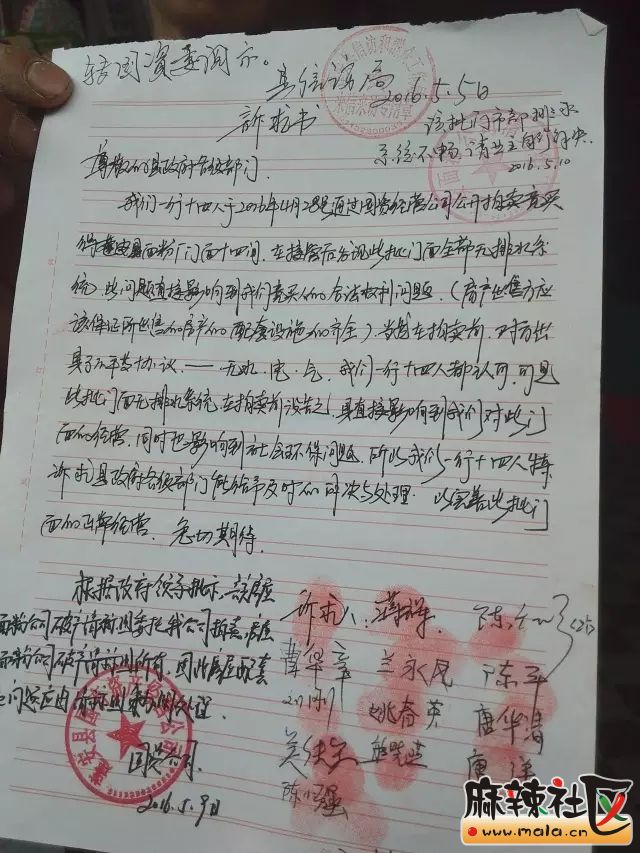 转国资委调示。
县信访局
2016.5.5日
诉求书
该批门市部排水
系统不畅,请业主自行解决.
2016.5.10
尊敬的县政府各级部门.
我们一行十四人于2016年4月28号通过国资经营公司公开拍卖竞买
得蓬安县面粉厂门面十四间.在接管后发现此批门面全部无排水系
统.此问题直接影响到我们竞买人的合法权利问题.(房产出售方应
该保证所出售的房产的配套设施的齐全).当时在拍卖前,对方出
具了不平等协议.——无水.电.气.我们一行十四人都认可,可是
此批门面无排水系统,在拍卖前没告之.具直接影响到我们对此门
面的经营.同时也影响到社会环保问题.所以我们一行十四人特
诉求县政府各级部门能给予及时的解决与处理.以完善此批门
面的正常经营.急切期待.
根据政府领导批示,该房屋
面粉公司破产清算组委托我公司拍卖.房屋
面粉公司破产清算组所有,因此房屋配套
问题应由清算组处理.
国资公司.
2016.5.9日
诉求人:
兰永凤
陈平
姚春英
唐华清
陈小强
麻辣社区
www.mala.cn